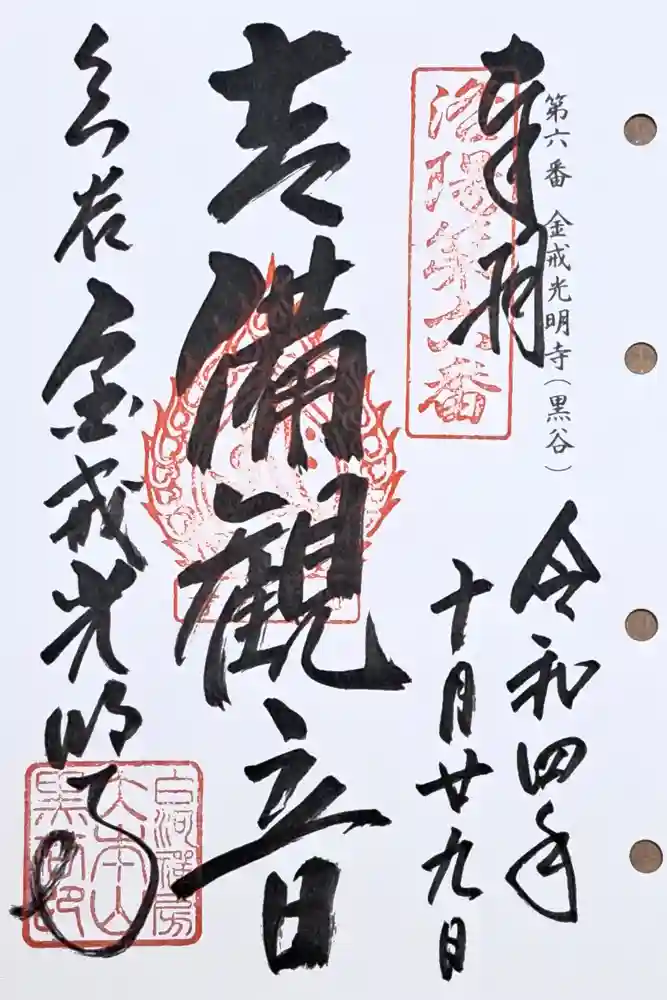 第六番 金戒光明寺(黒谷)
奉拝
洛陽第六番
令和四年
十月廿九日
吉備観音
金戒光明寺
大本山